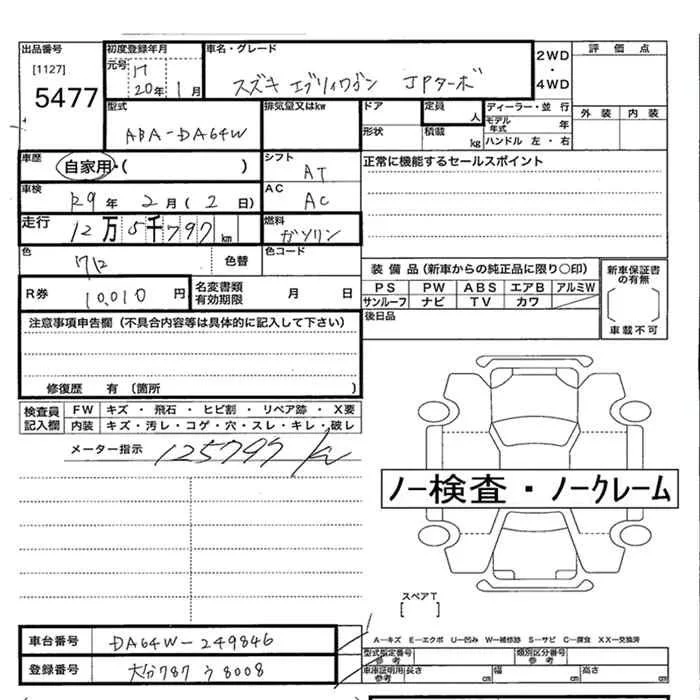 出品番号 初度登録年月 車名・グレード 2WD 評価点
[1127] 元号 H 20年 1月 スズキ エブリィワゴン JPターボ ・
5477 4WD
型式 排気量又はkw ドア 定員 人 ディーラー・並 行 外装 内装
ABA-DA64W 形状 積載 kg モデル年式 年
ハンドル 左・右
車歴 自家用・( ) シフト AT 正常に機能するセールスポイント
車検 R9年 2月(2日) AC AC
走行 12万5千797km 燃料 ガソリン
色 クロ 色替 色コード 装備品(新車からの純正品に限り○印) 新車保証書の有無
R券 10,010円 名変書類有効期限 月 日 PS PW ABS エアB アルミW
サンルーフ ナビ TV カワ 車載不可
注意事項申告欄(不具合内容等は具体的に記入して下さい) 後日品
修復歴 有(箇所 )
検査員記入欄 FW キズ・飛石・ヒビ割・リペア跡・X要
内装 キズ・汚レ・コゲ・穴・スレ・キレ・破レ
メーター指示 125797 km
ノー検査・ノークレーム
スペアT
[ ]
A―キズ E―エクボ U―凹み W―補修跡 S―サビ C―腐食 XX―交換済
車台番号 DA64W-249846 型式指定番号 参考 類別区分番号 参考
登録番号 大分787 ウ8008 車庫証明用 参考 長さ cm 幅 cm 高さ cm